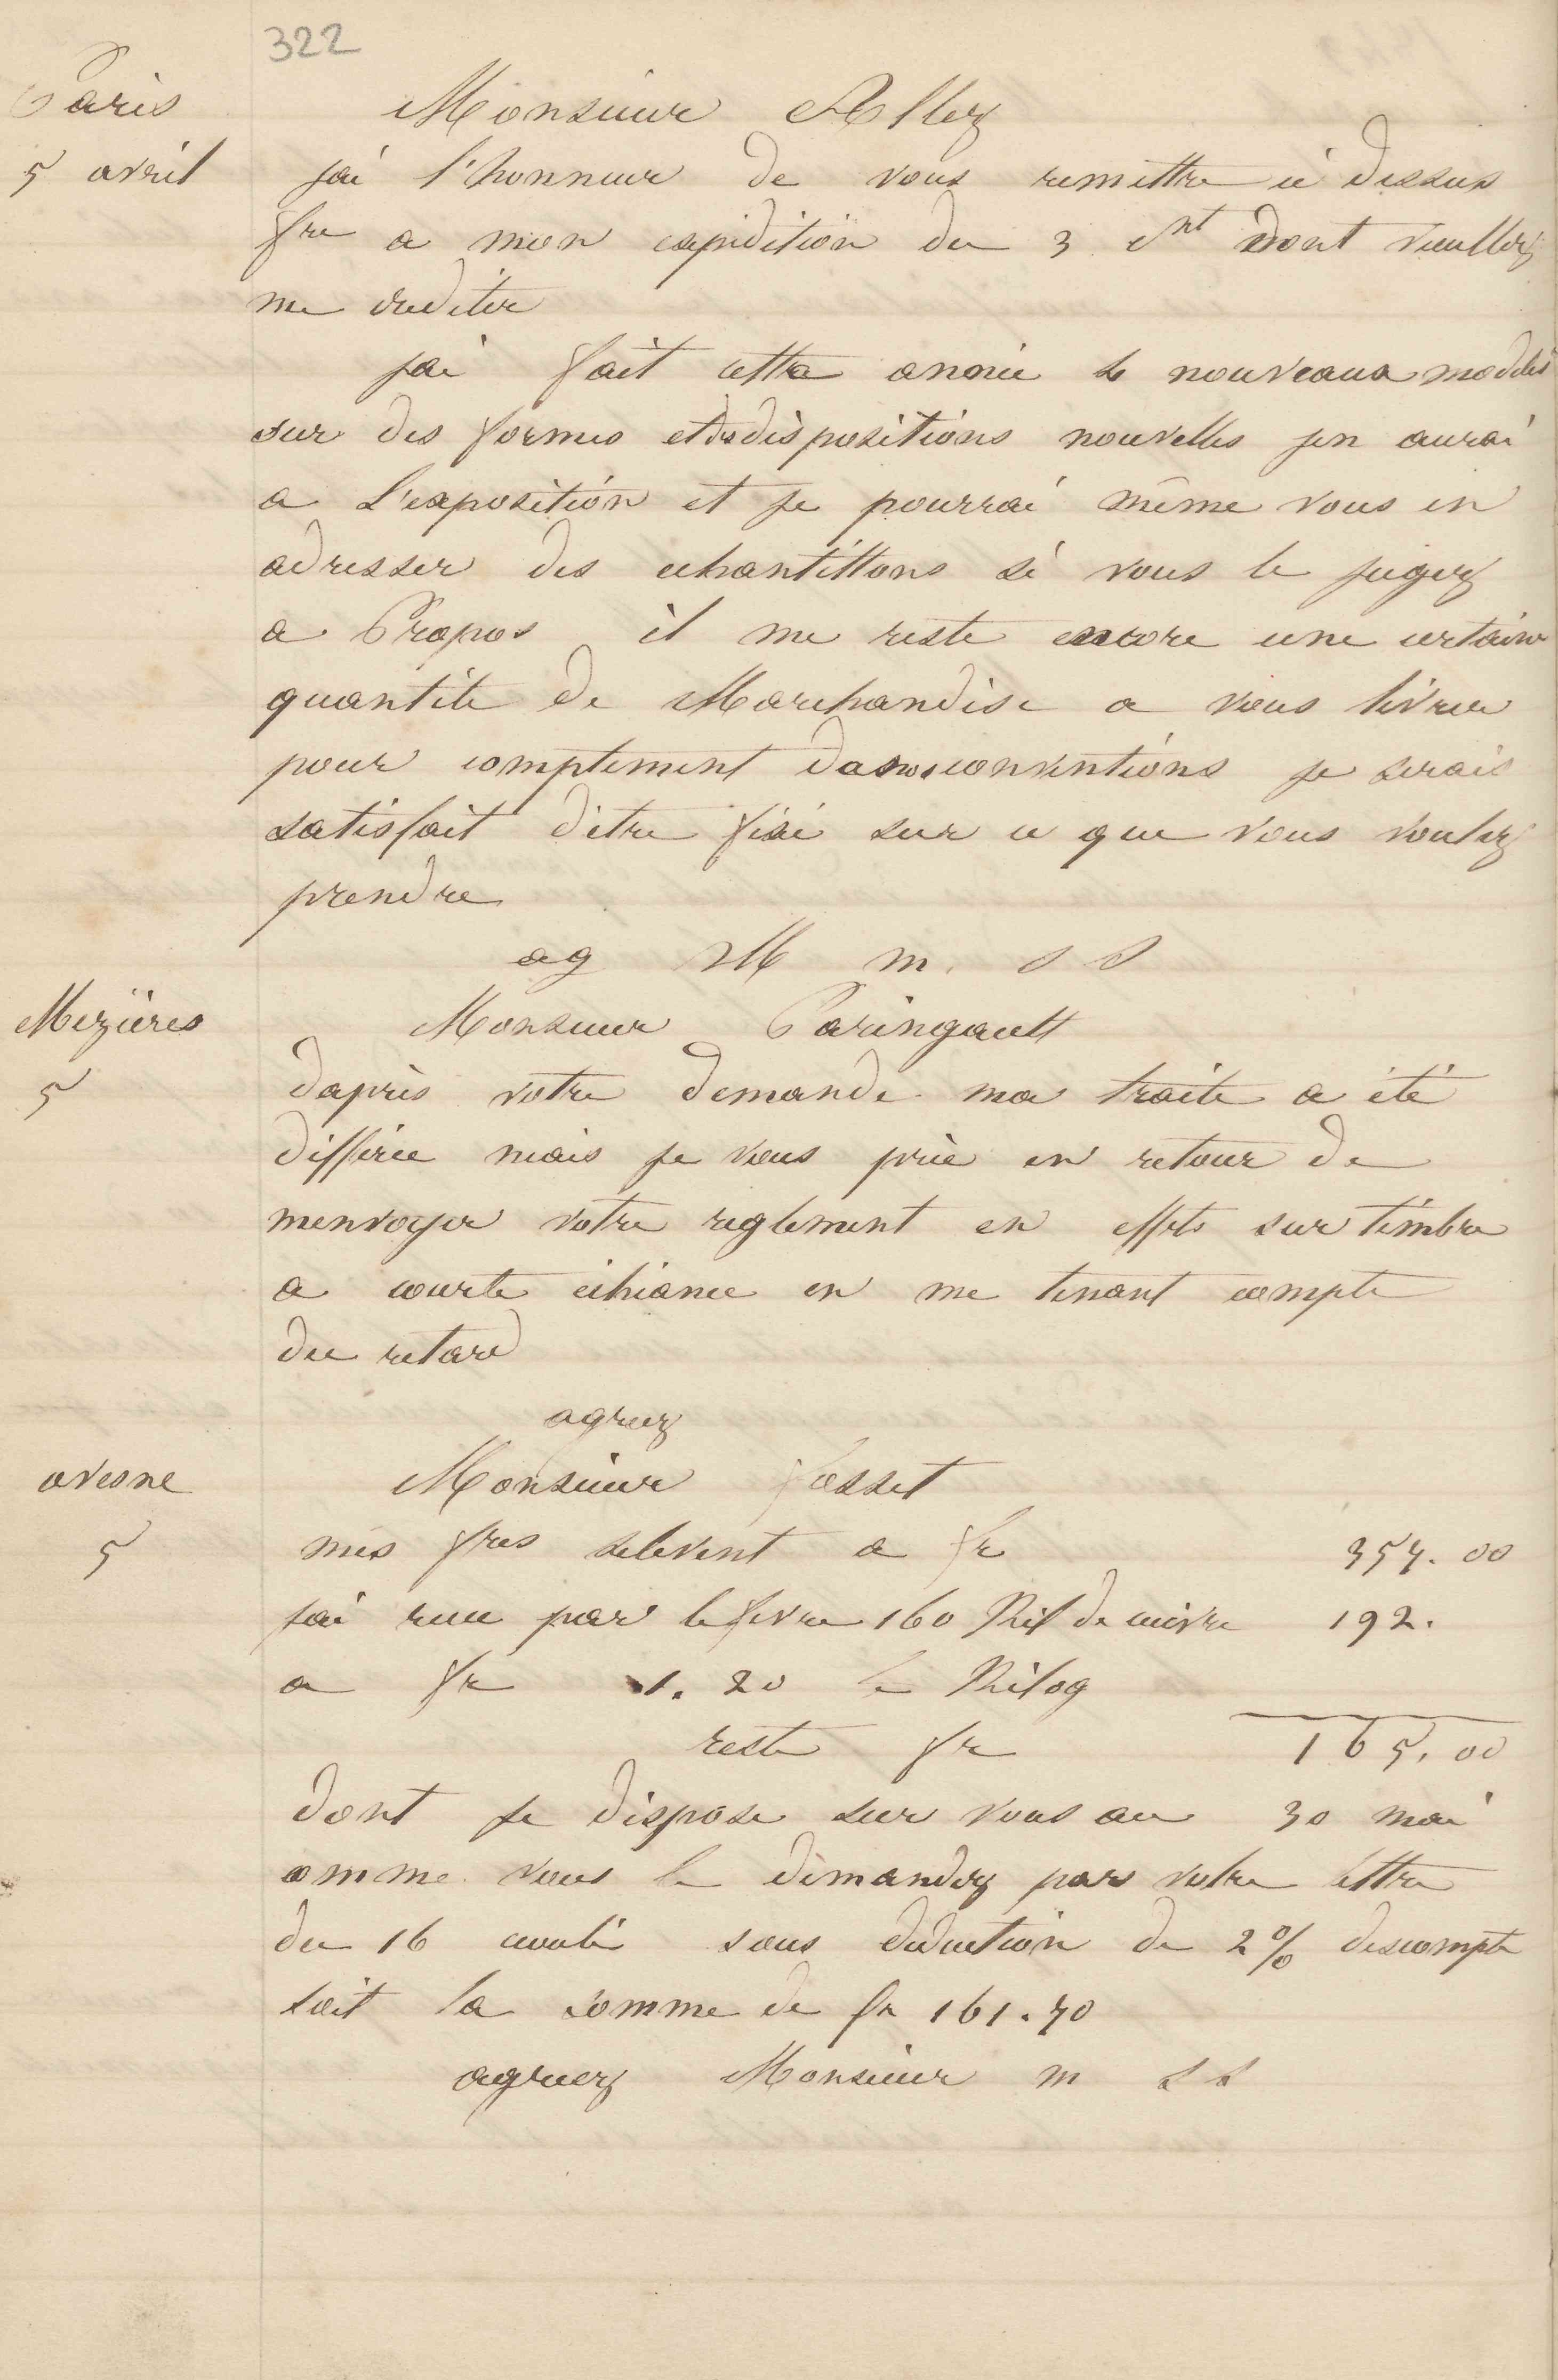 322
Paris
5 avril
Monsieur Allez
jai l'honneur de vous remettre ci dessus
fre a mon expedition du 3 ct dont veuillez
me crediter
jai fait cette année de nouveaux modeles
sur des formes et des dispositions nouvelles jen aurai
a L'exposition et je pourrai même vous en
adresser des echantillons si vous le jugez
a Propos il me reste encore une certaine
quantite de Marchandise a vous livrer
pour complement da nos conventions je serais
satisfait d'etre fixé sur ce que vous voulez
prendre
ag M m. s s
Mezières
5
Monsieur Paringault
daprès votre demande ma traite a été
differée mais je vous prie en retour de
menvoyer votre reglement en effets sur timbre
a courte echéance en me tenant compte
du retard
agreez
avesne
5
Monsieur fosset
mes fres selevent a fr 357.00
jai recu par lefevre 160 Kil de cuivre 192.
a fr 1.20 le Kilog
reste fr 165.00
dont je dispose sur vous au 30 mai
comme vous le demandez par votre lettre
du 16 sous deduction de 2% descompte
soit la somme de fr 161.70
agreez Monsieur m s s